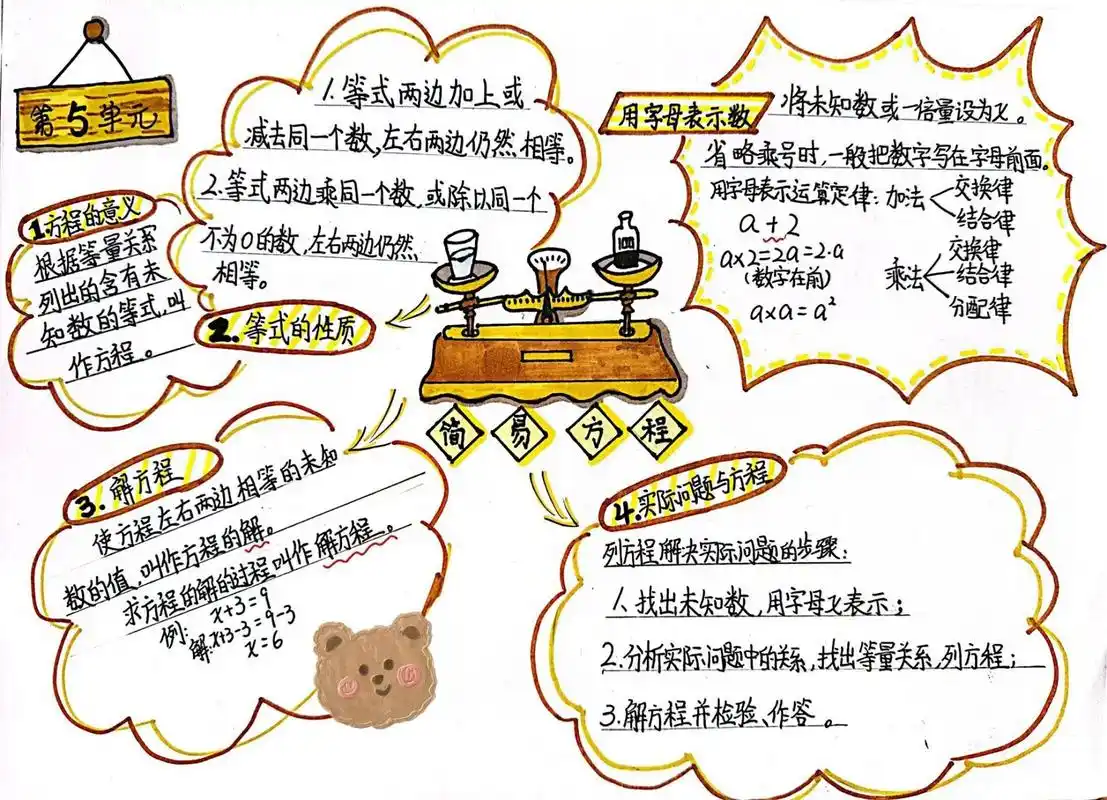 第5单元
1.方程的意义
根据等量关系
列出的含有未
知数的等式,叫
作方程。
1.等式两边加上或
减去同一个数,左右两边仍然相等。
2.等式两边乘同一个数,或除以同一个
不为0的数,左右两边仍然
相等。
2.等式的性质
用字母表示数
将未知数或一倍量设为x。
省略乘号时,一般把数字写在字母前面。
用字母表示运算定律:加法
交换律
结合律
a+2
a×2=2a=2·a
(数字在前)
a×a=a²
乘法
交换律
结合律
分配律
100
简易方程
3.解方程
使方程左右两边相等的未知
数的值,叫作方程的解。
求方程的解的过程叫作解方程。
例:x+3=9
解:x+3-3=9-3
x=6
4.实际问题与方程
列方程解决实际问题的步骤:
1、找出未知数,用字母x表示;
2.分析实际问题中的关系,找出等量关系,列方程;
3.解方程并检验、作答。